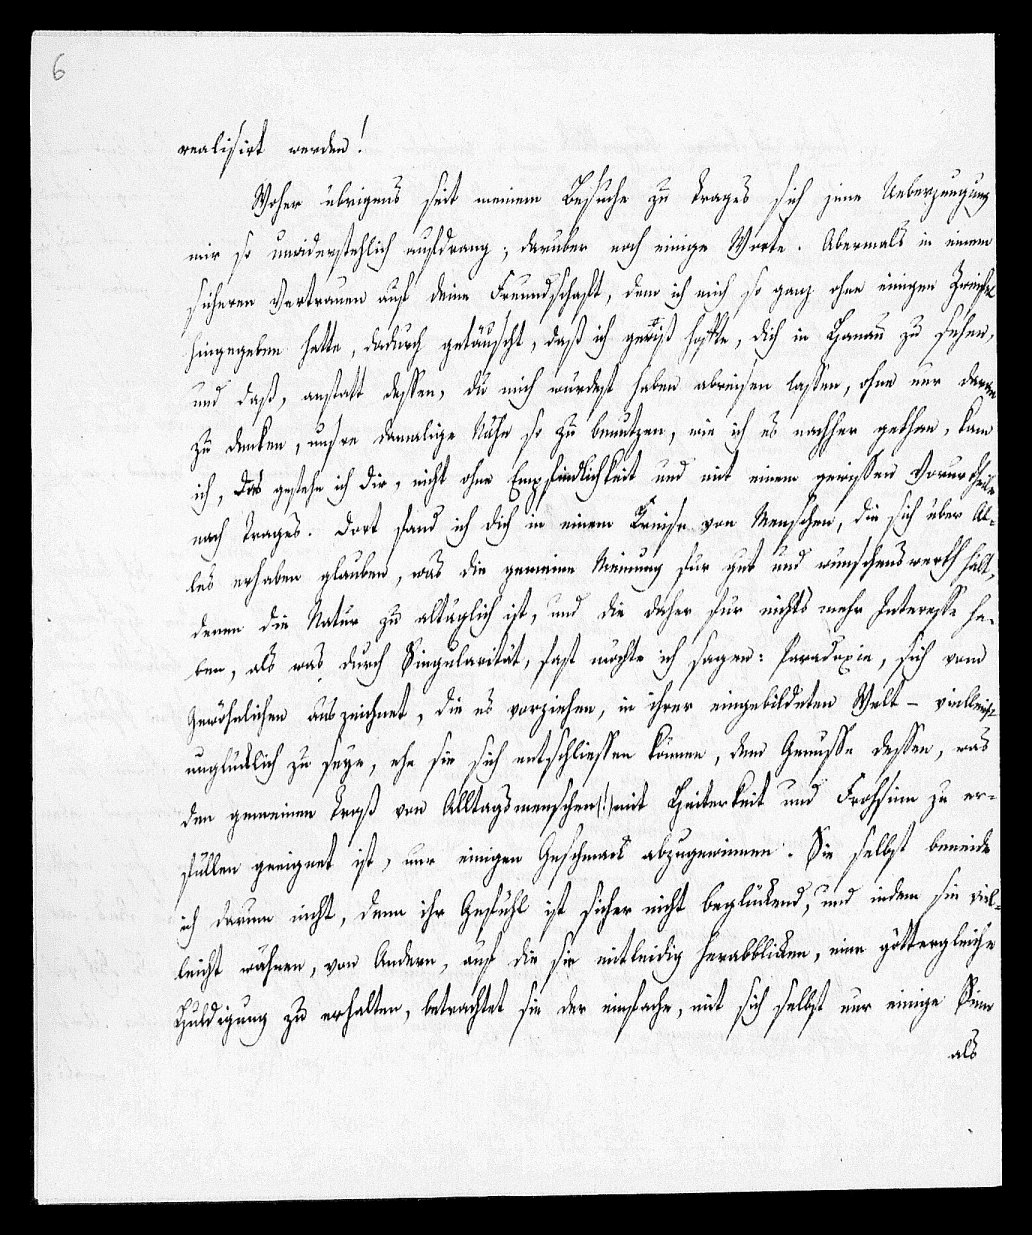 6
realisirt werden!
Woher übrigens seit meinem Besuche zu Trages sich jene Ueberzeugung
mir so unwiderstehlich aufdrang; darüber noch einige Worte. Abermals in einem
sicheren Vertrauen auf deine Freundschaft, dem ich mich so ganz ohne einigen Zweifel
hingegeben hatte, dadurch getäuscht, daß ich gewiß hoffte, dich in Hanau zu sehen,
und daß, anstatt dessen, du mich würdest haben abreisen lassen, ohne nur daran
zu denken, unsre damalige Nähe so zu benutzen, wie ich es nachher gethan, kam
ich, das gestehe ich dir, nicht ohne Empfindlichkeit und mit einem gewissen Vorurtheile
nach Trages. Dort fand ich dich in einem Kreise von Menschen, die sich über Al-
les erhaben glauben, was die gemeine Meinung für gut und wünschenswerth hält,
denen die Natur zu altäglich ist, und die daher für nichts mehr Interesse ha-
ben, als was durch Singularität, fast möchte ich sagen: Paradoxie, sich vom
Gewöhnlichen auszeichnet, die es vorziehen, in ihrer eingebildeten Welt – vielleicht
unglücklich zu seyn, ehe sie sich entschliessen können, dem Genusse dessen, was
den gemeinen Troß von Alltagsmenschen (!) mit Heiterkeit und Frohsinn zu er-
füllen geeignet ist, nur einigen Geschmack abzugewinnen. Sie selbst beneide
ich darum nicht, denn ihr Gefühl ist sicher nicht beglückend, und indem sie viel-
leicht wähnen, von Andern, auf die sie mitleidig herabblicken, eine göttergleiche
Huldigung zu erhalten, betrachtet sie der einfache, mit sich selbst nur einige Sinn
als